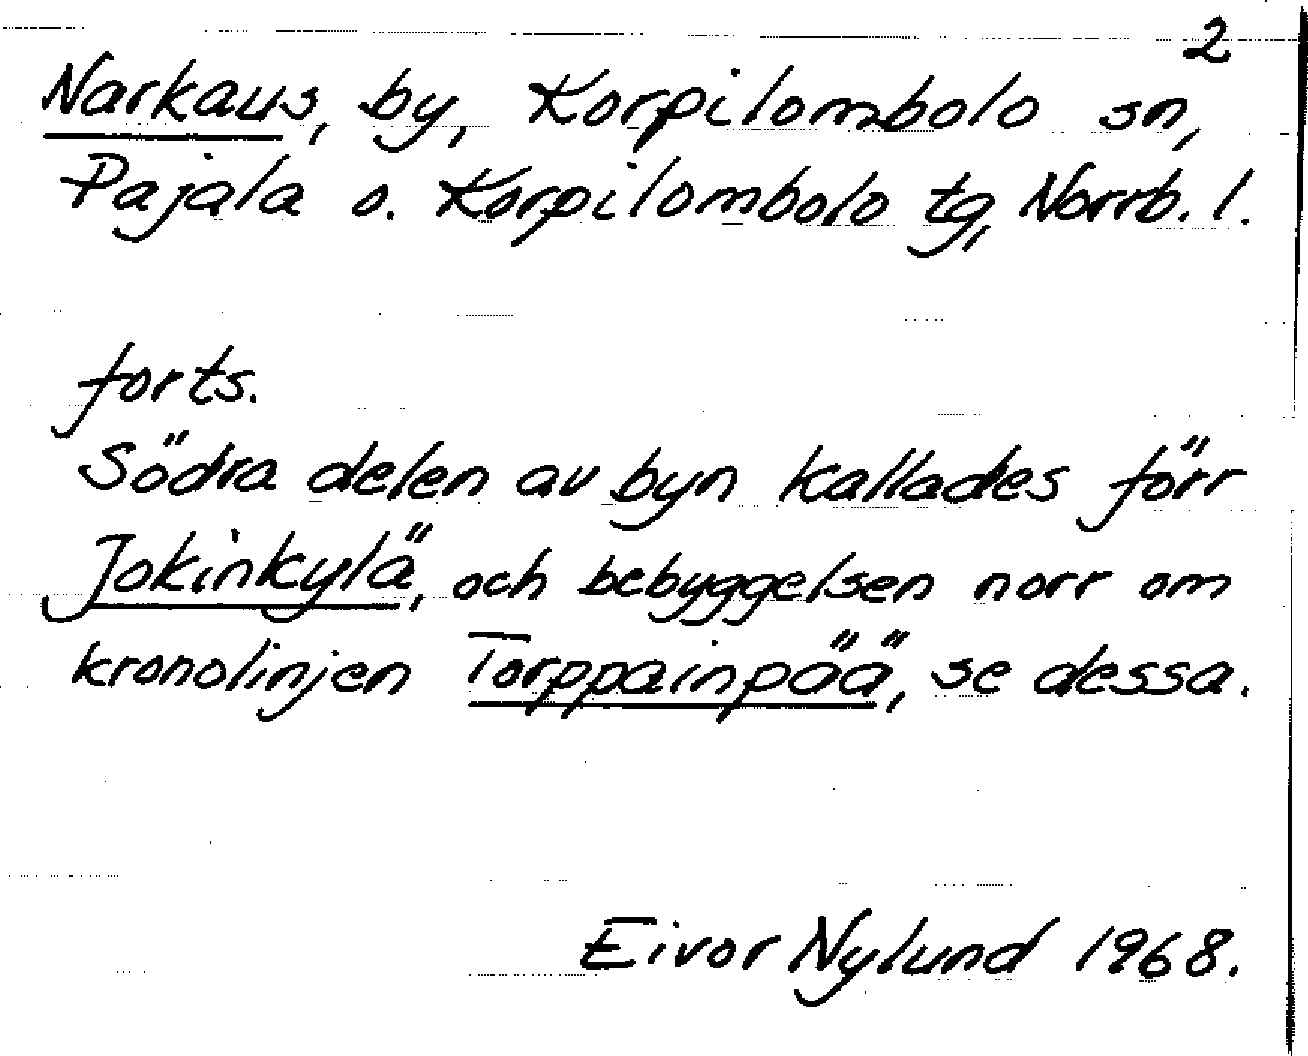 2
Narkaus, by, Korpilombolo sn,
Pajala o. Korpilombolo tg, Norrb. l.
forts.
Södra delen av byn kallades förr
Jokinkylä, och bebyggelsen norr om
kronolinjen Torppainpää, se dessa.
Eivor Nylund 1968.